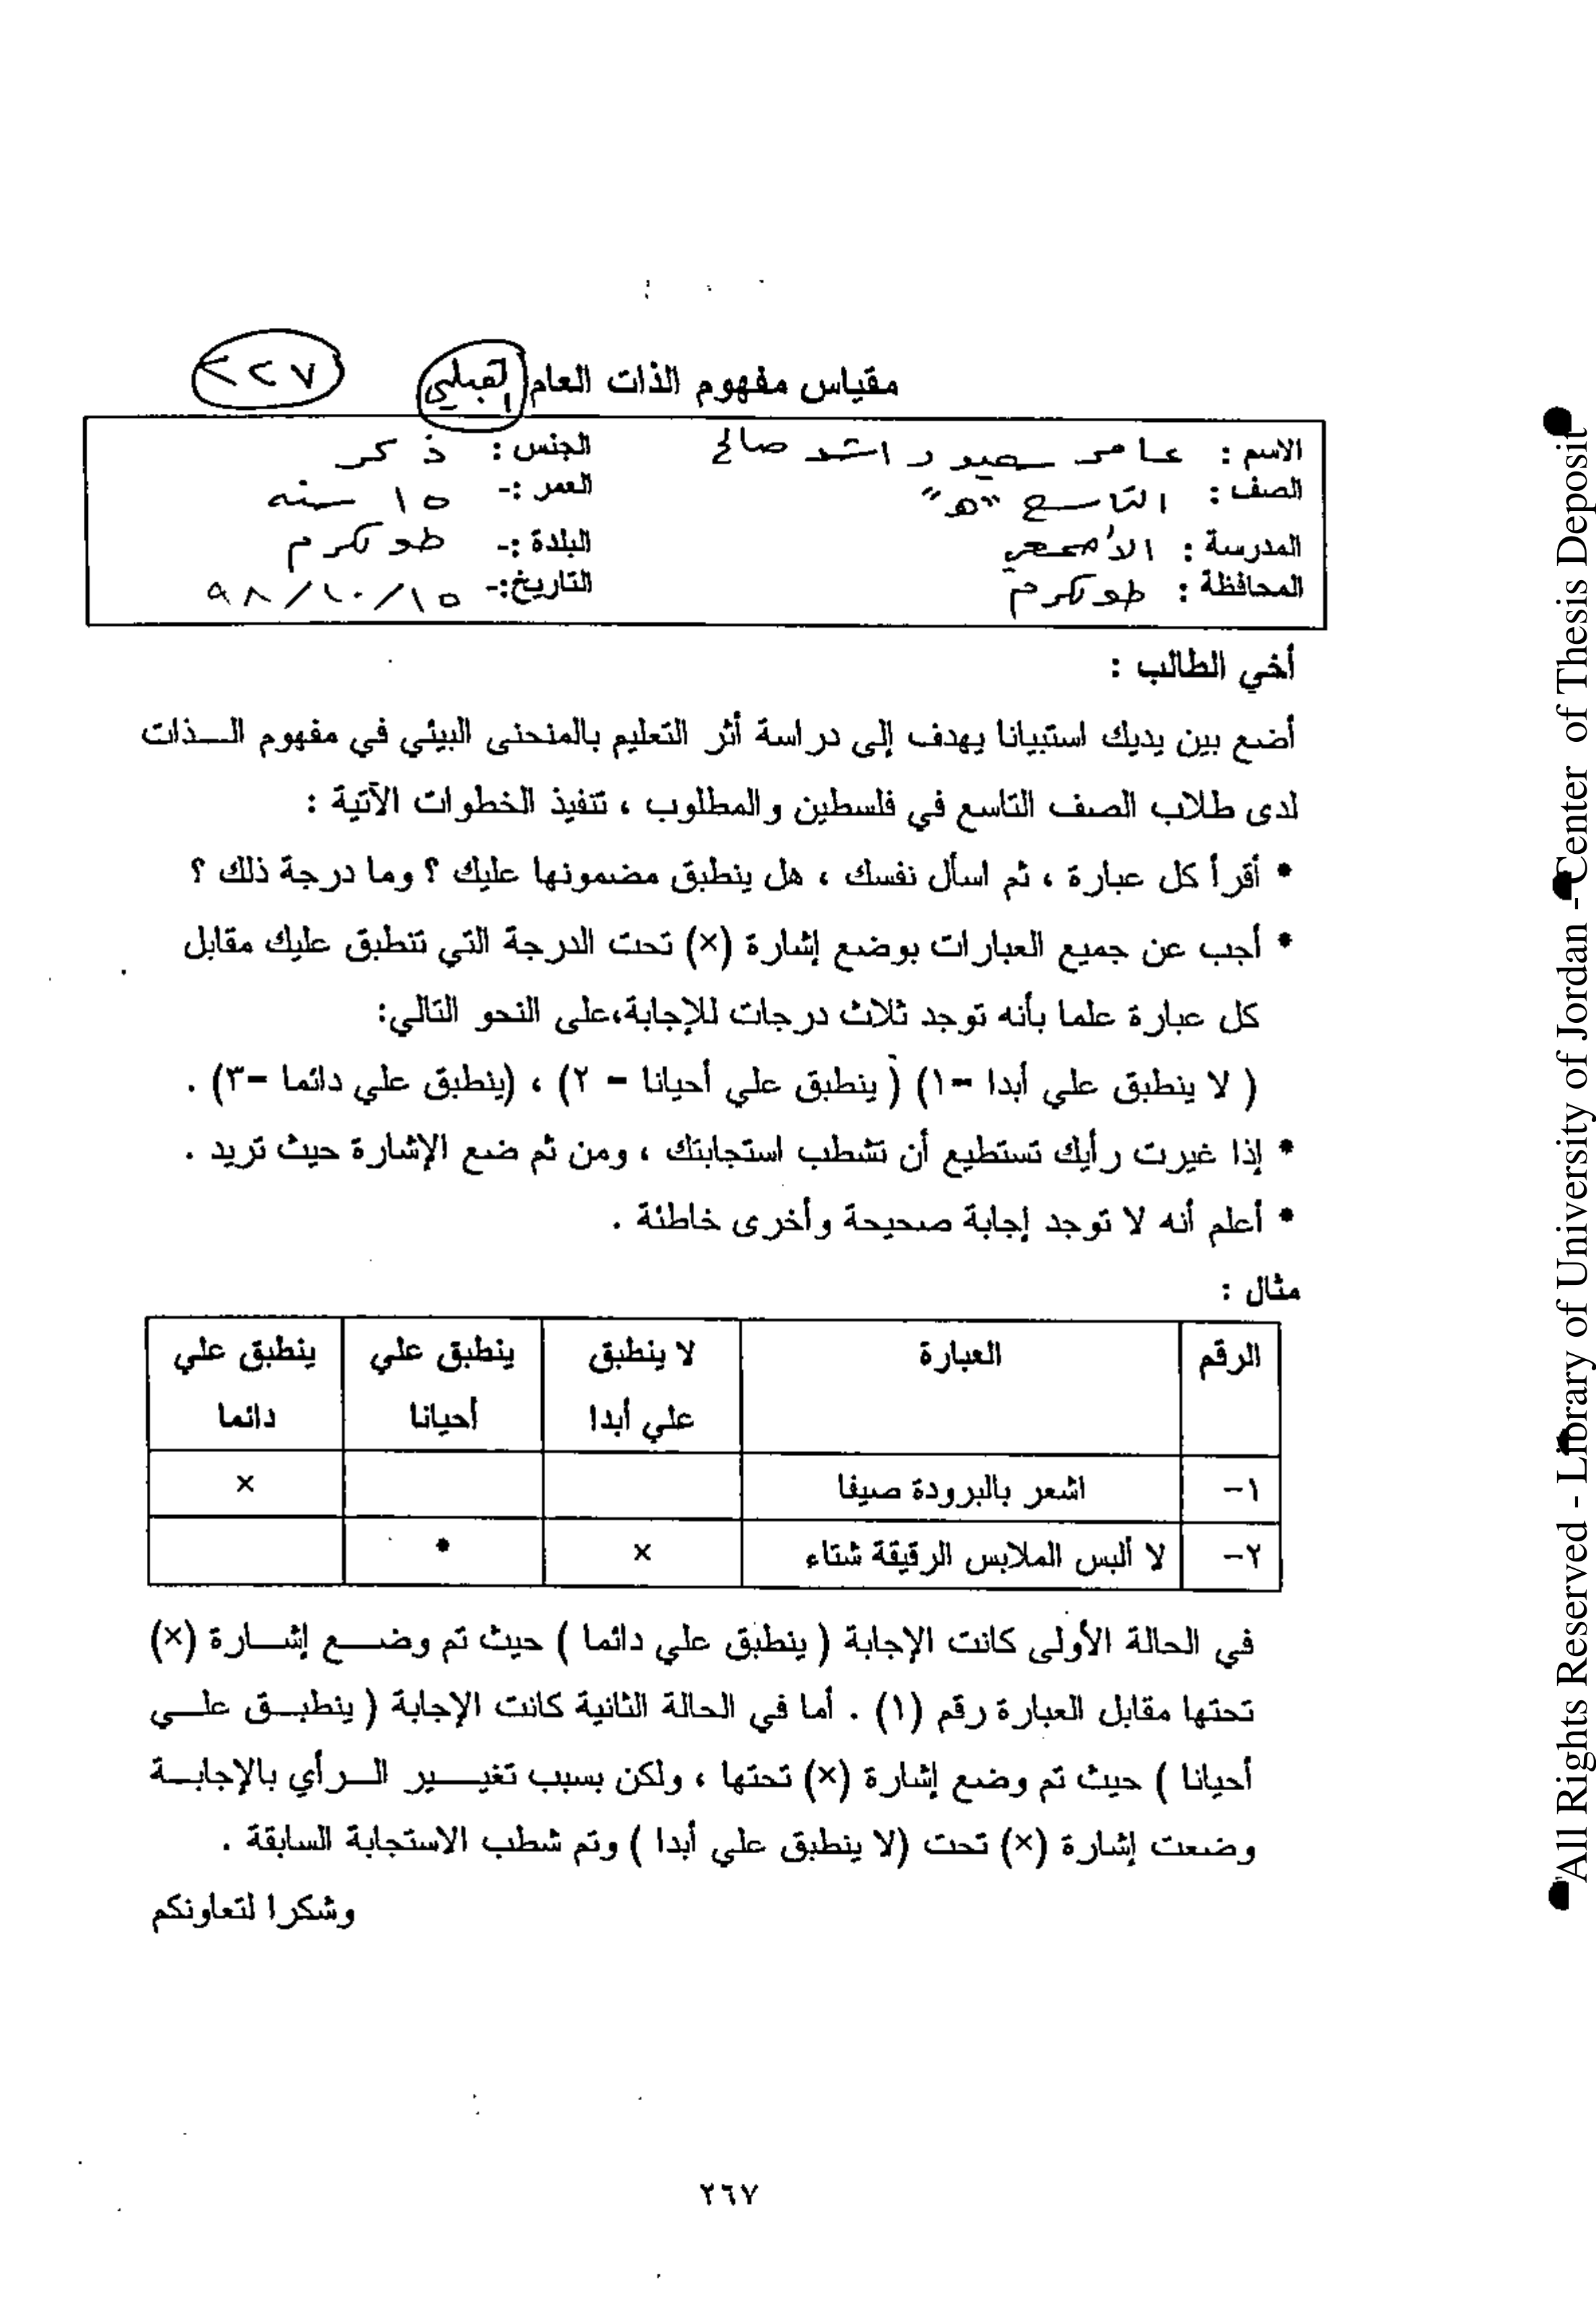 مقياس مفهوم الذات العام القبلي ٢٢٧
الاسم : عامر راشد صالح الجنس : ذكر
الصف : التاسع "هـ" العمر :- ١٥ سنه
المدرسة : الجنس البلدة :- طولكرم
المحافظة : طولكرم التاريخ:- ١٥/١٠/٩٨
أخي الطالب :
أضع بين يديك استبيانا يهدف إلى دراسة أثر التعليم بالمنحنى البيئي في مفهوم الـــذات
لدى طلاب الصف التاسع في فلسطين والمطلوب ، تنفيذ الخطوات الآتية :
* أقرأ كل عبارة ، ثم اسأل نفسك ، هل ينطبق مضمونها عليك ؟ وما درجة ذلك ؟
* أجب عن جميع العبارات بوضع إشارة (×) تحت الدرجة التي تنطبق عليك مقابل
كل عبارة علما بأنه توجد ثلاث درجات للإجابة،على النحو التالي:
( لا ينطبق علي أبدا –١) ( ينطبق علي أحيانا – ٢) ، (ينطبق علي دائما –٣) .
* إذا غيرت رأيك تستطيع أن تشطب استجابتك ، ومن ثم ضع الإشارة حيث تريد .
* أعلم أنه لا توجد إجابة صحيحة وأخرى خاطئة .
مثال :
الرقم العبارة لا ينطبق علي أبدا ينطبق علي أحيانا ينطبق علي دائما
١– اشعر بالبرودة صيفا ×
٢– لا ألبس الملابس الرقيقة شتاء × *
في الحالة الأولى كانت الإجابة ( ينطبق علي دائما ) حيث تم وضـــع إشـــارة (×)
تحتها مقابل العبارة رقم (١) . أما في الحالة الثانية كانت الإجابة ( ينطبــق علـــي
أحيانا ) حيث تم وضع إشارة (×) تحتها ، ولكن بسبب تغيـــــير الــرأي بالإجابــة
وضعت إشارة (×) تحت (لا ينطبق علي أبدا ) وتم شطب الاستجابة السابقة .
وشكرا لتعاونكم
٢٦٧
All Rights Reserved - Library of University of Jordan - Center of Thesis Deposit